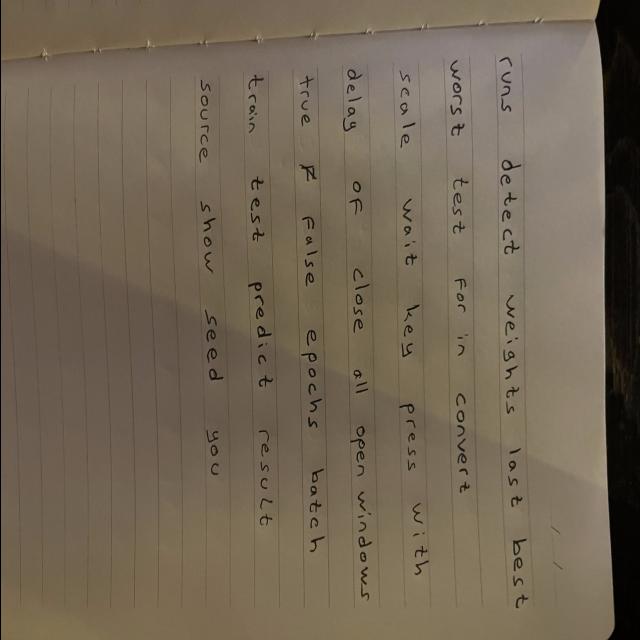 runs detect weights last best
worst test for in convert
scale wait key press with
delay of close all open windows
true F false epochs batch
train test predict result
source show seed you